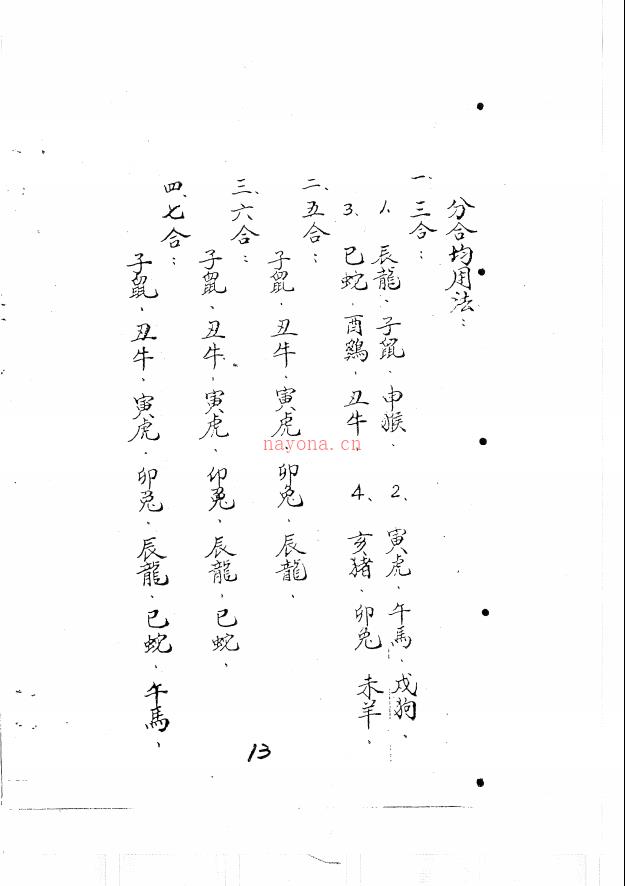 分合均用法：
一、三合：
1、辰龍、子鼠、申猴、 2、寅虎、午馬、戌狗、
3、巳蛇、酉鷄、丑牛、 4、亥猪、卯兔、未羊、
二、五合：
子鼠、丑牛、寅虎、卯兔、辰龍、
三、六合：
子鼠、丑牛、寅虎、卯兔、辰龍、巳蛇、
四、七合：
子鼠、丑牛、寅虎、卯兔、辰龍、巳蛇、午馬、
13
nayona.cn